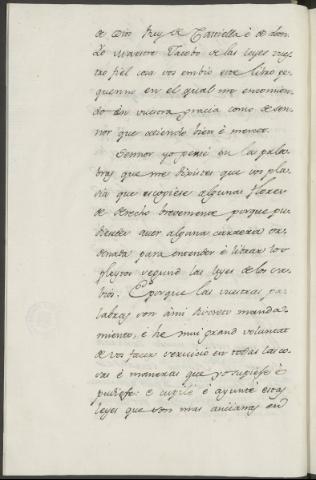 de Dios Rey de Castiella é de Leon
Yo Maestre Jacobo de las leyes vues
tro fiel cosa vos embio este libro pe
quenno en el qual me encomien
do en vuestra gracia como de sen
nor que atiendo bien é merced.
Sennor yo pensé en las pala
bras que me dixistes que vos pla
cia que escogiese algunas flores
de derecho brevemente porque pu
diesedes aver alguna carrera or
denata para entender é librar los
pleytos segund las leyes de los sa
bios. E porque las vuestras pa
labras son á mi discreto manda
miento, é he mui grand voluntat
de vos facer servicio en todas las co
sas é maneras que yo supiese é
pudiese: é cupilé é ayunté estas
leyes que son mas ancianas en